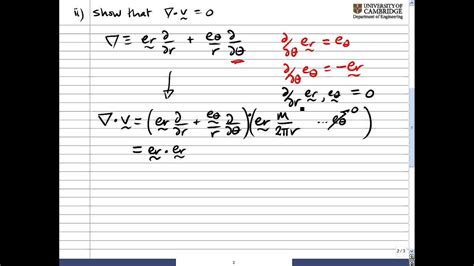 ii) Show that ∇·v = 0
UNIVERSITY OF
CAMBRIDGE
Department of Engineering
∇ ≡ er ∂/∂r + eθ/r ∂/∂θ
∂/∂θ er = eθ
∂/∂θ eθ = -er
∂/∂r er, eθ = 0
∇·v = (er ∂/∂r + eθ/r ∂/∂θ)·(er m/2πr ... eθ 0)
= er · er
2
2/3